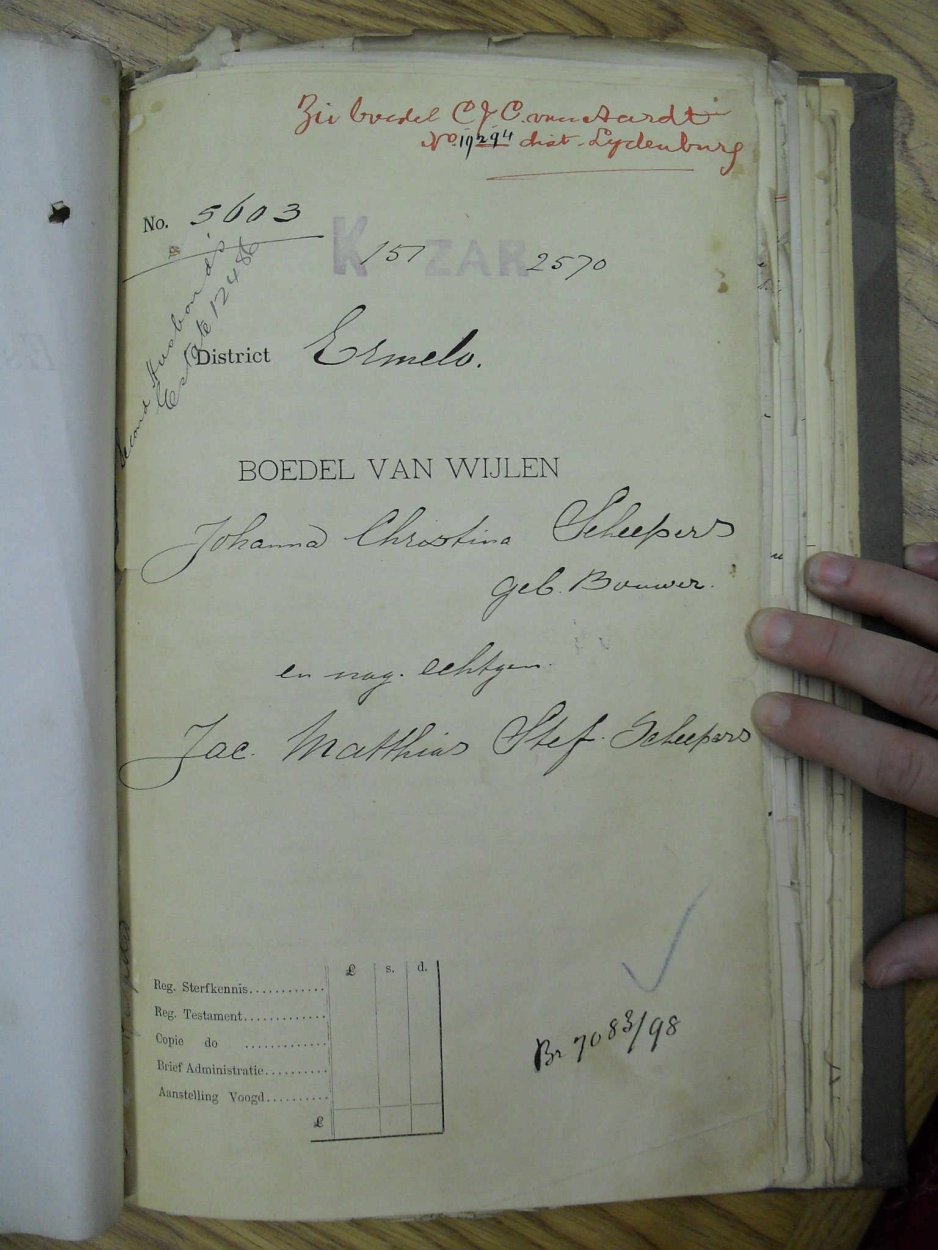 Zie boedel C J C. van Aardt
No. 19294 dist. Lydenburg
No. 5603
K 157 ZAR 2570
Second Husband's
Estate 12486
District Ermelo.
BOEDEL VAN WIJLEN
Johanna Christina Scheepers
geb. Bouwer.
en nag. echtgen.
Jac. Matthias Stef. Scheepers
£ s. d.
Reg. Sterfkennis............
Reg. Testament............
Copie do ............
Brief Administratie..........
Aanstelling Voogd..........
£
Br 7083/98